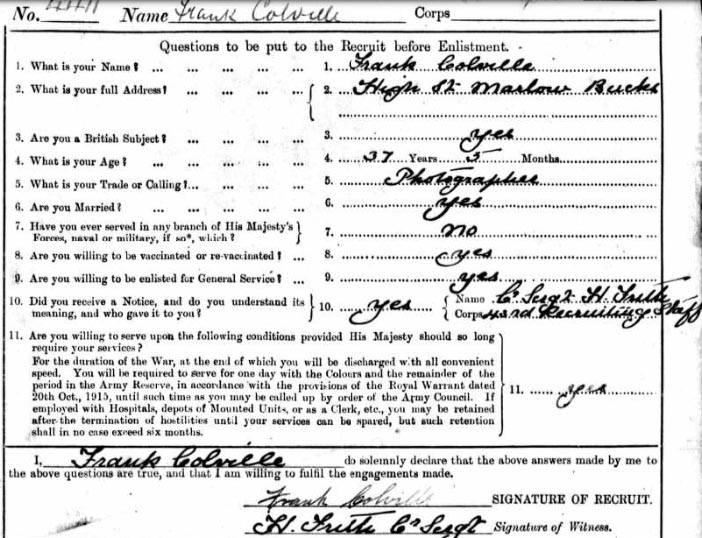 No. Name Frank Colville Corps
Questions to be put to the Recruit before Enlistment.
1. What is your Name? ... ... ... ... 1. Frank Colville
2. What is your full Address? ... ... ... 2. High St. Marlow Bucks
3. Are you a British Subject? ... ... ... 3. yes
4. What is your Age? ... ... ... ... 4. 37 Years 5 Months
5. What is your Trade or Calling?... ... ... 5. Photographer
6. Are you Married? ... ... ... ... 6. yes
7. Have you ever served in any branch of His Majesty's
Forces, naval or military, if so*, which? 7. no
8. Are you willing to be vaccinated or re-vaccinated? ... 8. yes
9. Are you willing to be enlisted for General Service? ... 9. yes
10. Did you receive a Notice, and do you understand its
meaning, and who gave it to you? ... 10. yes Name Cr Sergt H. Frith
Corps 43rd Recruiting Staff
11. Are you willing to serve upon the following conditions provided His Majesty should so long
require your services?
For the duration of the War, at the end of which you will be discharged with all convenient
speed. You will be required to serve for one day with the Colours and the remainder of the
period in the Army Reserve, in accordance with the provisions of the Royal Warrant dated
20th Oct., 1915, until such time as you may be called up by order of the Army Council. If
employed with Hospitals, depots of Mounted Units, or as a Clerk, etc., you may be retained
after the termination of hostilities until your services can be spared, but such retention
shall in no case exceed six months.
11. yes
I, Frank Colville do solemnly declare that the above answers made by me to
the above questions are true, and that I am willing to fulfil the engagements made.
Frank Colville SIGNATURE OF RECRUIT.
H. Frith Cr Sergt Signature of Witness.